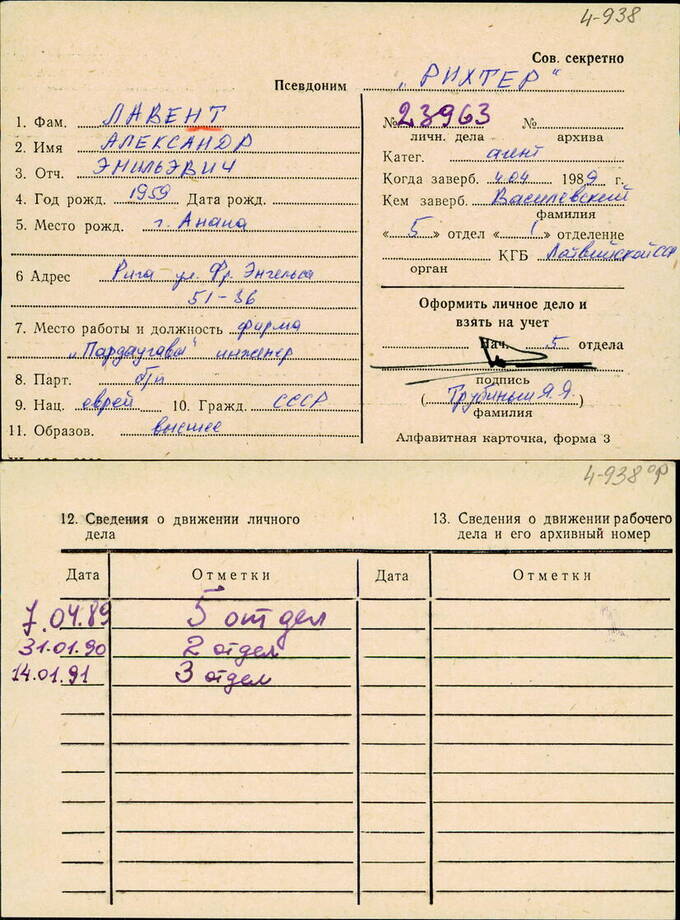 4-938
Сов. секретно
Псевдоним „РИХТЕР“
1. Фам. ЛАВЕНТ
2. Имя АЛЕКСАНДР
3. Отч. ЭМИЛЬЭВИЧ
4. Год рожд. 1959 Дата рожд.
5. Место рожд. г. Анапа
6 Адрес Рига ул. Фр. Энгельса
51-36
7. Место работы и должность фирма
„Пардаугава“ инженер
8. Парт. б/п
9. Нац. еврей 10. Гражд. СССР
11. Образов. высшее
№ 23963 №
личн. дела архива
Катег. агент
Когда заверб. 4.04 1989 г.
Кем заверб. Василевский
фамилия
« 5 » отдел « 1 » отделение
КГБ Латвийской ССР
орган
Оформить личное дело и
взять на учет
Нач. 5 отдела
подпись
( Трубиньш Я.Я. )
фамилия
Алфавитная карточка, форма 3
4-938 об
12. Сведения о движении личного
дела
13. Сведения о движении рабочего
дела и его архивный номер
Дата Отметки Дата Отметки
7.04.89 5 отдел
31.01.90 2 отдел
14.01.91 3 отдел